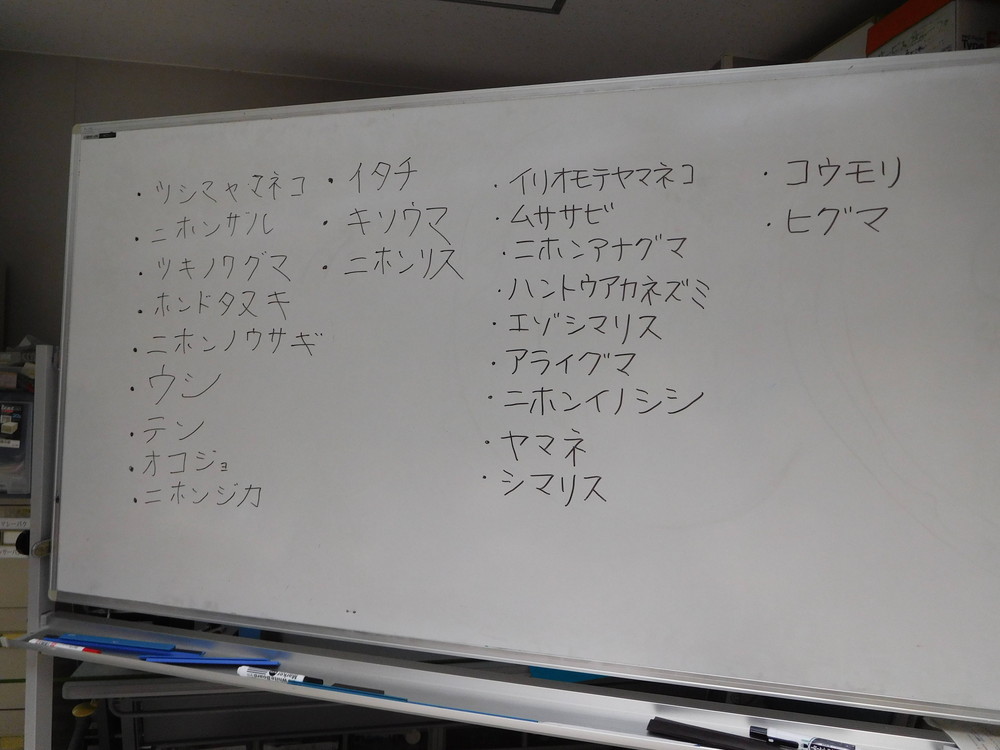 ・ツシマヤマネコ
・ニホンザル
・ツキノワグマ
・ホンドタヌキ
・ニホンノウサギ
・ウシ
・テン
・オコジョ
・ニホンジカ
・イタチ
・キソウマ
・ニホンリス
・イリオモテヤマネコ
・ムササビ
・ニホンアナグマ
・ハントウアカネズミ
・エゾシマリス
・アライグマ
・ニホンイノシシ
・ヤマネ
・シマリス
・コウモリ
・ヒグマ